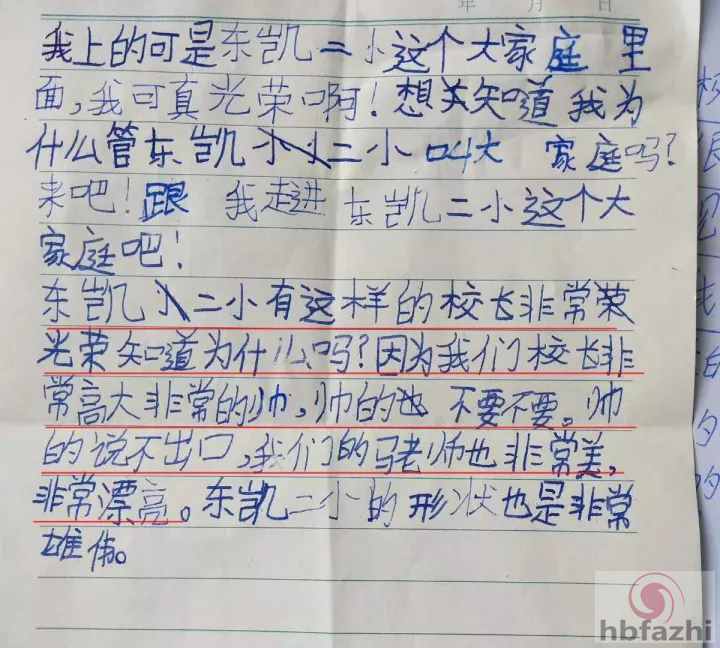 年 月 日
我上的可是东凯二小这个大家庭里
面,我可真光荣啊!想关知道我为
什么管东凯二小叫大 家庭吗?
来吧!跟 我走进东凯二小这个大
家庭吧!
东凯二小有这样的校长非常荣
光荣知道为什么吗?因为我们校长非
常高大非常的帅,帅的也 不要不要。帅
的说不出口,我们的马老师也非常美,
非常漂亮。东凯二小的形状也是非常
雄伟。
hbfazhi